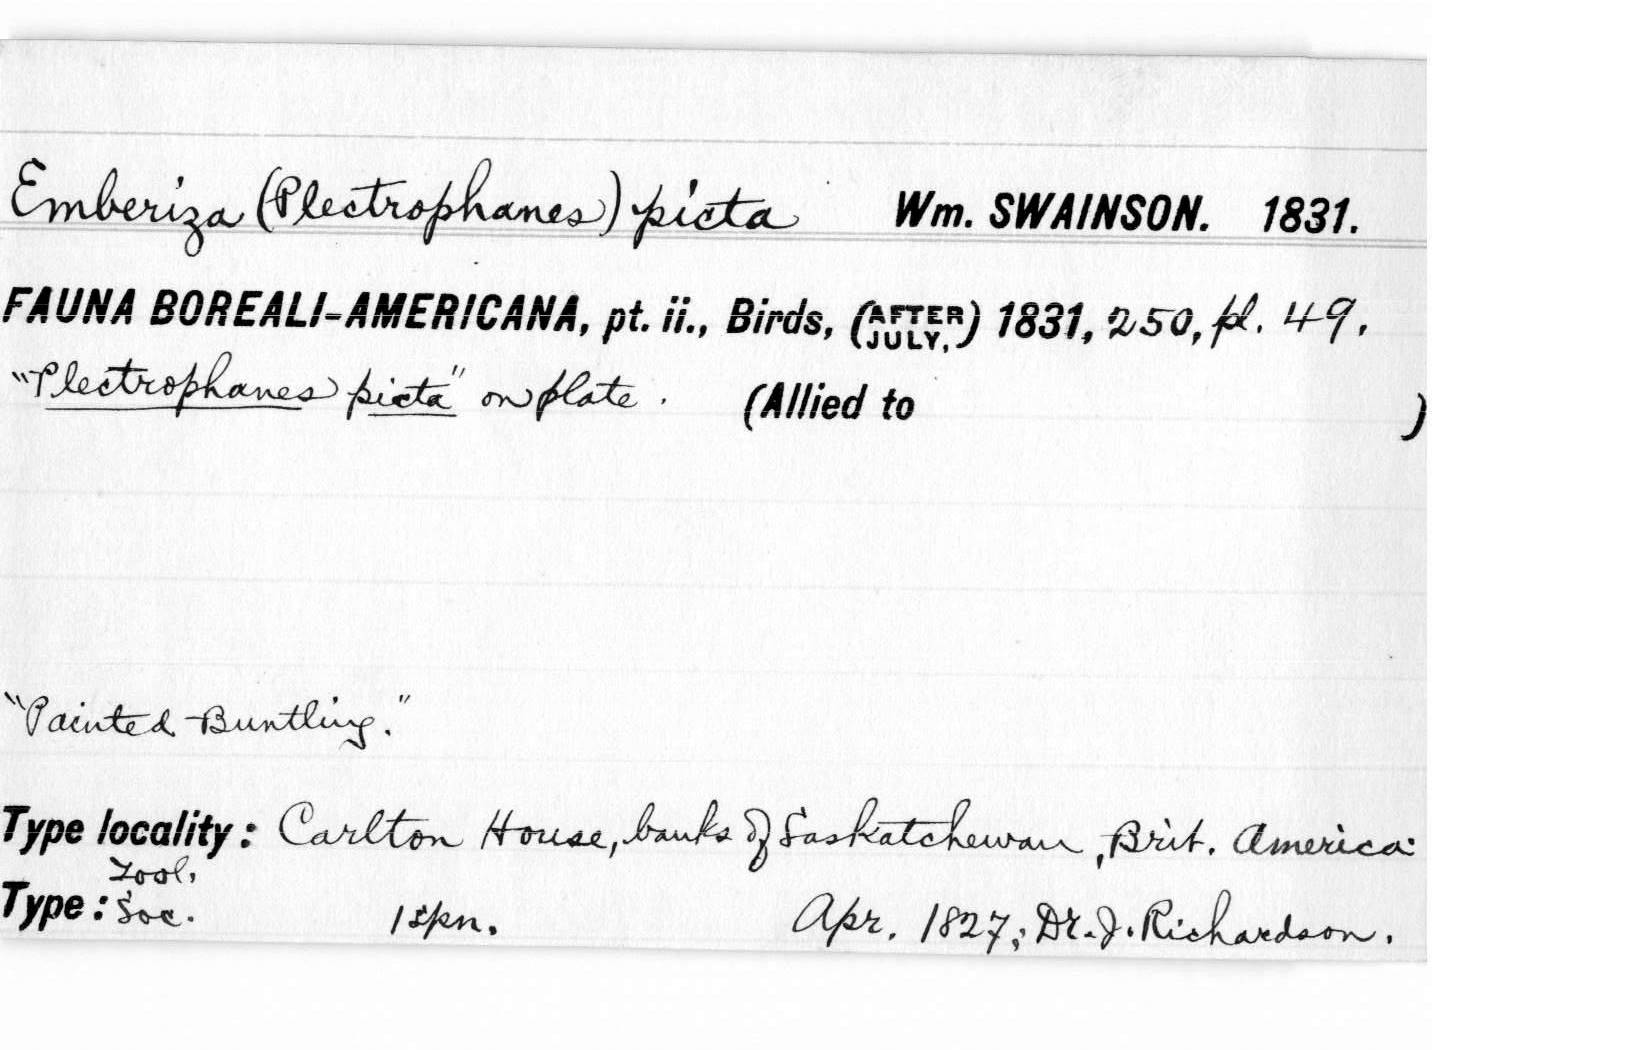 Emberiza (Plectrophanes) picta Wm. SWAINSON. 1831.
FAUNA BOREALI-AMERICANA, pt. ii., Birds, (AFTER JULY,) 1831, 250, pl. 49.
"Plectrophanes picta" on plate. (Allied to )
"Painted Buntling."
Type locality: Carlton House, banks of Saskatchewan, Brit. America:
Type: Zool. Soc. 1 spn. Apr. 1827; Dr. J. Richardson.